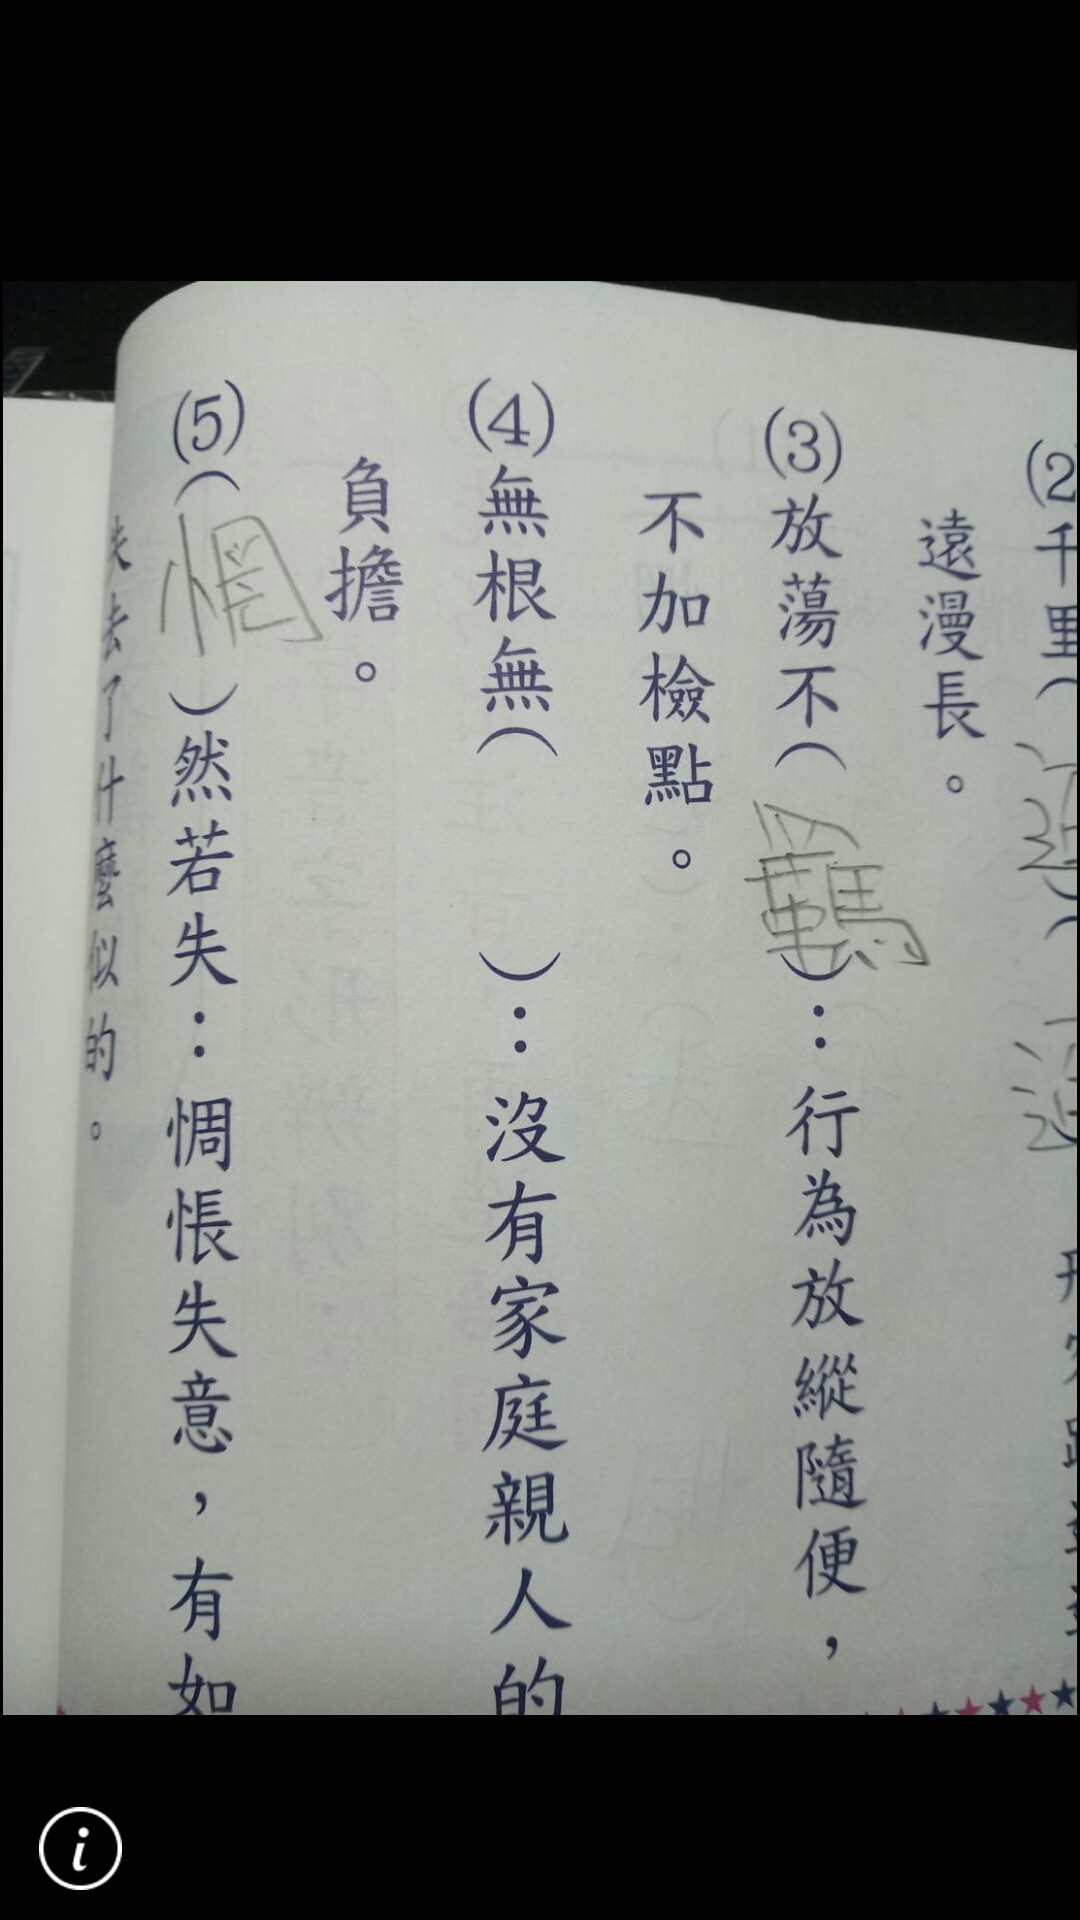 (2)千里(
遠漫長。
(3)放蕩不(羈):行為放縱隨便，
不加檢點。
(4)無根無(　):沒有家庭親人的
負擔。
(5)(惘)然若失:惆悵失意，有如
失去了什麼似的。